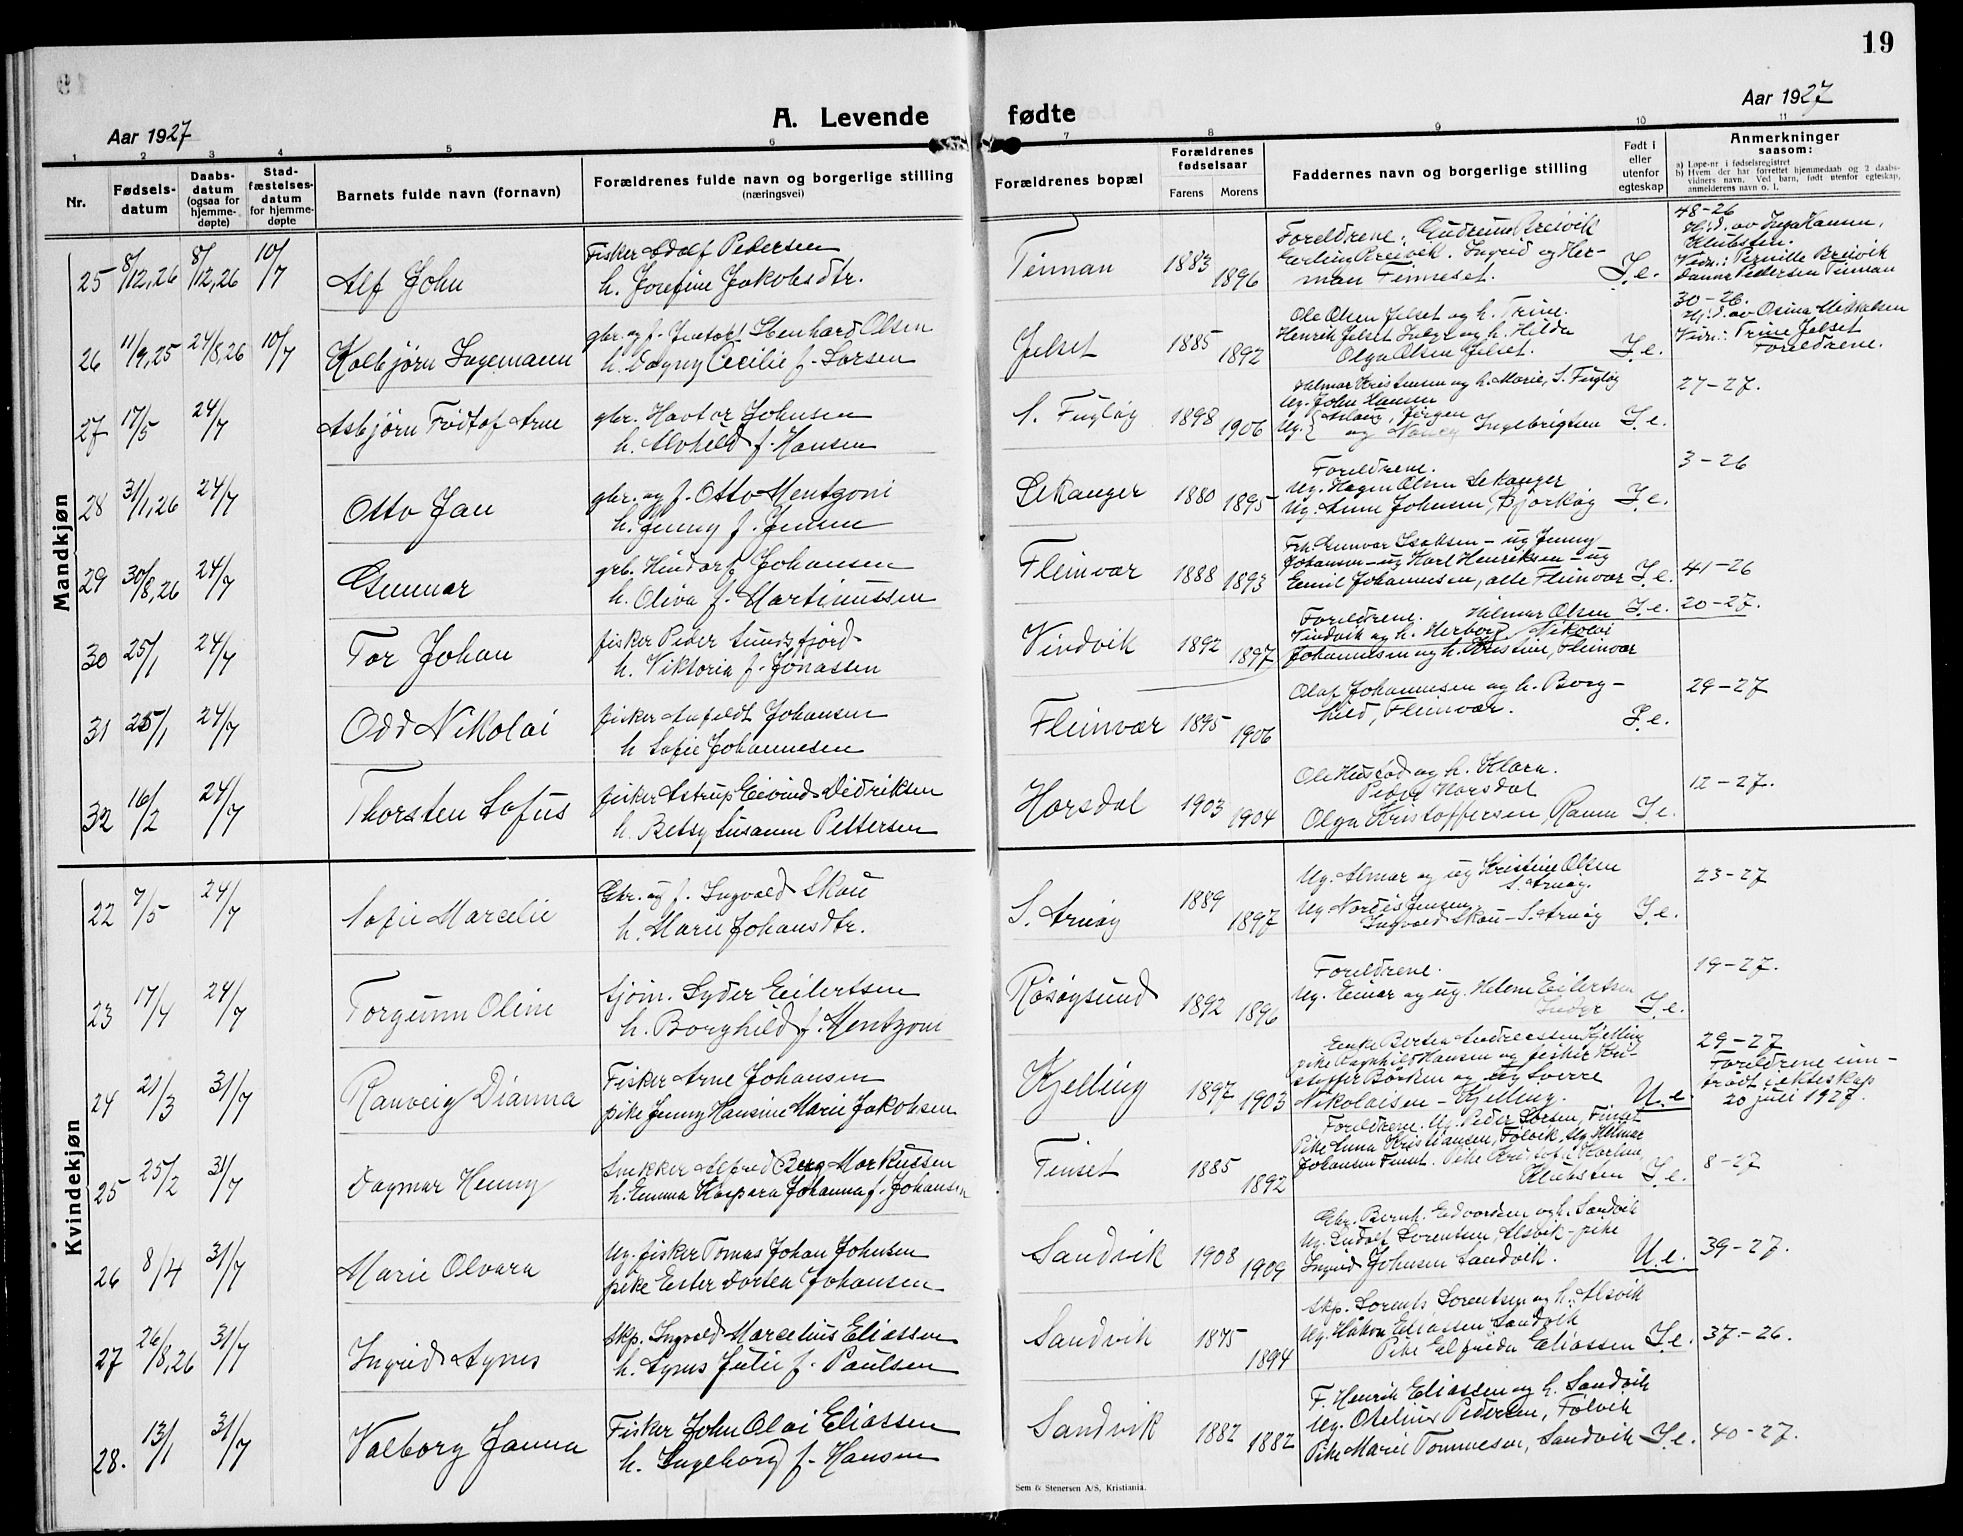 19
A. Levende fødte
Aar 1927
Aar 1927
1 2 3 4 5 6 7 8 9 10 11
Nr.
Fødsels-
datum
Daabs-
datum
(ogsaa for
hjemme-
døpte)
Stad-
fæstelses-
datum
for hjemme-
døpte
Barnets fulde navn (fornavn)
Forældrenes fulde navn og borgerlige stilling
(næringsvei)
Forældrenes bopæl
Forældrenes
fødselsaar
Farens Morens
Faddernes navn og borgerlige stilling
Født i
eller
utenfor
egteskap
Anmerkninger
saasom:
a) Løpe-nr i fødselsregistret
b) Hvem der har forrettet hjemmedaab og 2 daabs-
vidners navn. Ved barn, født utenfor egteskap,
anmelderens navn o. l.
Mandkjøn
25 8/12,26 8/12,26 10/7 Alf John
Fisker Adolf Pedersen
h. Josefine Jakobsdtr.
Tinnan 1883 1896
Foreldrene, Gudrun Breivik
Breivik. Ingrid og Her-
man Finneset.
I.e.
48-26
Hj.d. av Inga Hansen,
Klubsten.
Vidn.: Pernille Breivik
Pedersen Tinnan
26 11/9,25 24/8,26 10/7 Kolbjørn Hagemann
gbr. og f. Lenhard Olsen
h. Dagny Cecilie f. Larsen
Jelset 1885 1892
Ole Olsen Jelset og h. Trine.
Henrik Jelset og h. Hilda
Olga Olsen Jelset.
I.e.
30-26.
Hj.d. av Osina Mikkelsen
Vidn.: Trine Jelset
Foreldrene.
27 17/5 24/7 Asbjørn Fridtof Arne
gbr. Havtor Johnsen
h. Alvhild f. Hansen
S. Fugløy 1898 1906
Hilmar Kristensen og h. Marie, S. Fugløy
Ug. John Hansen
Ug. Aslaug, Jørgen
og Nancy Ingebrigtsen
I.e.
27-27.
28 31/1,26 24/7 Otto Jan
gbr. og f. Otto Mentzoni
h. Jenny f. Jensen
Lekanger 1880 1895
Foreldrene.
Ug. Hagen Olsen Lekanger
Ug. Anna Johnsen, Bjørkøy
I.e.
3-26
29 30/8,26 24/7 Gunnar
grb. Hindorf Johansen
h. Oliva f. Martinussen
Fleinvær 1888 1893
Frk. Gunvor Isaksen - ug Jenny
Johansen - ug Karl Henriksen - ug
Emil Johannesen, alle Fleinvær
I.e.
41-26
30 25/1 24/7 Tor Johan
fisker Peder Sundsfjord
h. Viktoria f. Jonassen
Vindvik 1892 1897
Foreldrene. Hilmar Olsen
Vindvik og h. Herborg, Nikolai
Johannesen og h. Kristine, Fleinvær
I.e.
20-27.
31 25/1 24/7 Odd Nikolai
fisker Anfeldt Johansen
h Sofie Johannesen
Fleinvær 1895 1906
Olaf Johannesen og h. Borg-
hild, Fleinvær.
I.e.
29-27
32 16/2 24/7 Thorsten Sofus
fisker Astrup Eivind Didriksen
h. Betsy Susanne Pettersen
Horsdal 1903 1904
Ole Hustad og h. Klara.
Peder Horsdal
Olga Kristoffersen, Ramn
I.e.
12-27.
Kvindekjøn
22 7/5 24/7 Sofie Marcelie
Gbr. og f. Ingvald Skau
h. Marie Johansdtr.
S. Arnøy 1889 1897
Ug. Almar og ug Kristine Olsen
S. Arnøy.
Ug Nordis Jensen,
Ingvald Skau - S. Arnøy
I.e.
23-27
23 17/4 24/7 Torgunn Oline
sjøm. Lyder Eilertsen
h. Borghild f. Mentzoni
Røsøysund 1892 1896
Foreldrene.
Ug. Einar og ug. Helene Eilertsen
I.e.
19-27.
24 21/3 31/7 Ranveig Dianna
Fisker Arne Johansen
pike Jenny Hansine Marie Jakobsen
Kjelling 1897 1903
Enke Berten Andreassen Kjelling
pike Ragnhild Hansen og fisker Kri-
stoffer Børsen og ug Sverre
Nikolaisen - Kjelling.
U.e.
29-27
Foreldrene inn-
trådt i ekteskap
20 juli 1927.
25 25/2 31/7 Dagmar Henny
Snekker Alfred Berg Markussen
h. Emma Kaspara Johanna f. Johansen
Finset 1885 1892
Foreldrene. Ug. Peder Larsen, Finset
Pike Anna Kristiansen, Følvik, Ug Hilmar
Johansen Finset. Pike
Klubsten
I.e.
8-27
26 8/4 31/7 Marie Olvara
Ug. fisker Tomas Johan Johnsen
pike Ester Dortea Johansen
Sandvik 1908 1909
Gbr. Bernh. Edvardsen og h. Sandvik
Ug. Ludolf Lorentsen, Alsvik - pike
Ingrid Johnsen Sandvik.
U.e.
39-27.
27 26/8,26 31/7 Ingrid Agnes
Skp. Ingvald Marcelius Eliassen
h. Agnes Julie f. Paulsen
Sandvik 1875 1894
Skp. Lorents Lorentsen og h. Alsvik
Ug. Håkon Eliassen Sandvik
Pike Elfrida Eliassen
I.e.
37-26.
28. 13/1 31/7 Valborg Janna
Fisker John Olai Eliassen
h. Ingeborg f. Hansen
Sandvik 1882 1882
F. Henrik Eliassen og h. Sandvik
Ug. Otelius Pedersen, Følvik
Pike Marie Tommesen, Sandvik
I.e.
40-27.
Sem & Stenersen A/S, Kristiania.